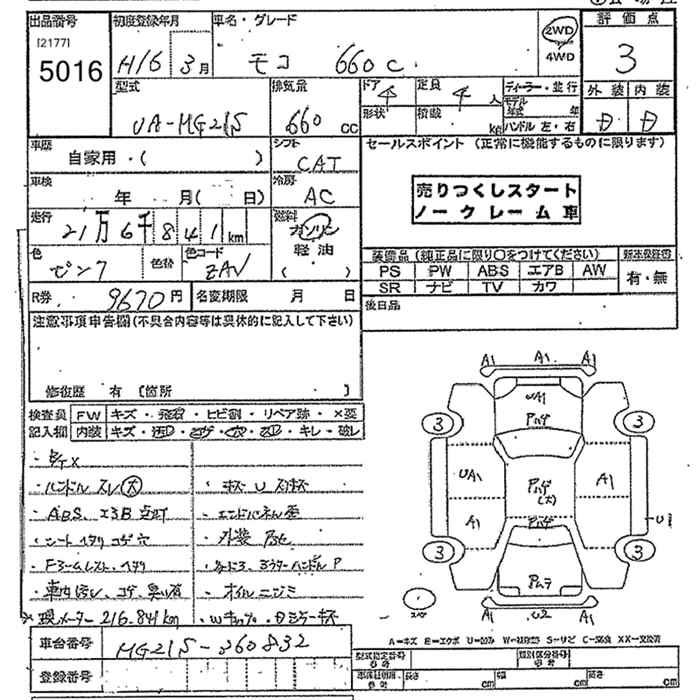 出品番号 初度登録年月 車名・グレード 2WD 評価点
[2177] 5016 H16年 3月 モコ 660 C 4WD 3
型式 排気量 ドア 4 定員 4人 ディーラー・並行 外装 内装
UA-MG21S 660cc 形状 積載 kg モデル年式 年 ハンドル 左・右 D D
車歴 自家用・( ) シフト CAT セールスポイント (正常に機能するものに限ります)
車検 年 月( 日) 冷房 AC
売りつくしスタート
ノークレーム車
走行 21万6千841km 燃料 ガソリン 軽油 ( )
色 ピンク 色替 色コード ZAV
装備品 (純正品に限り○をつけてください)
PS PW ABS エアB AW 有・無
SR ナビ TV カワ
R券 9670円 名変期限 月 日 後日品
注意事項申告欄(不具合内容等は具体的に記入して下さい)
修復歴 有 [箇所 ]
検査員 FW キズ・飛石・ヒビ割・リペア跡・×要
記入欄 内装 キズ・汚れ・コゲ・穴・・キレ・破レ
・ハンドル スレ(大)
・ABS、エアB 点灯 ・エンドパネル歪
・シート ヘタリ コゲ 穴 ・外装
・車内汚レ、コゲ、臭い有 ・オイルニジミ
※現メーター 216.841km
A1 A1 A1
UA1
Pハゲ
3 3
UA1 Pハゲ(大) A1
A1 Pハゲ U1
3 3
Pムラ
A1 U2 A1
A=キズ E=エクボ U=凹み W=補修跡 S=サビ C=腐食 XX=交換済
車台番号 MG21S-360832
型式指定番号 類別区分番号
登録番号 長さ cm 幅 cm 高さ cm